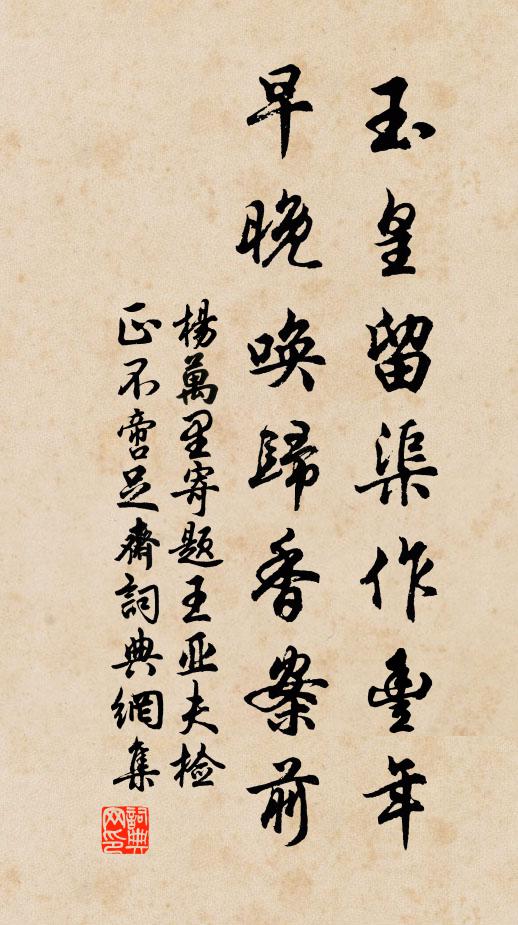 玉皇留渠作豐年
早晚喚歸香案前
楊萬里寄題王亚夫检
正不啻足齋詞典網集
詞典
网印